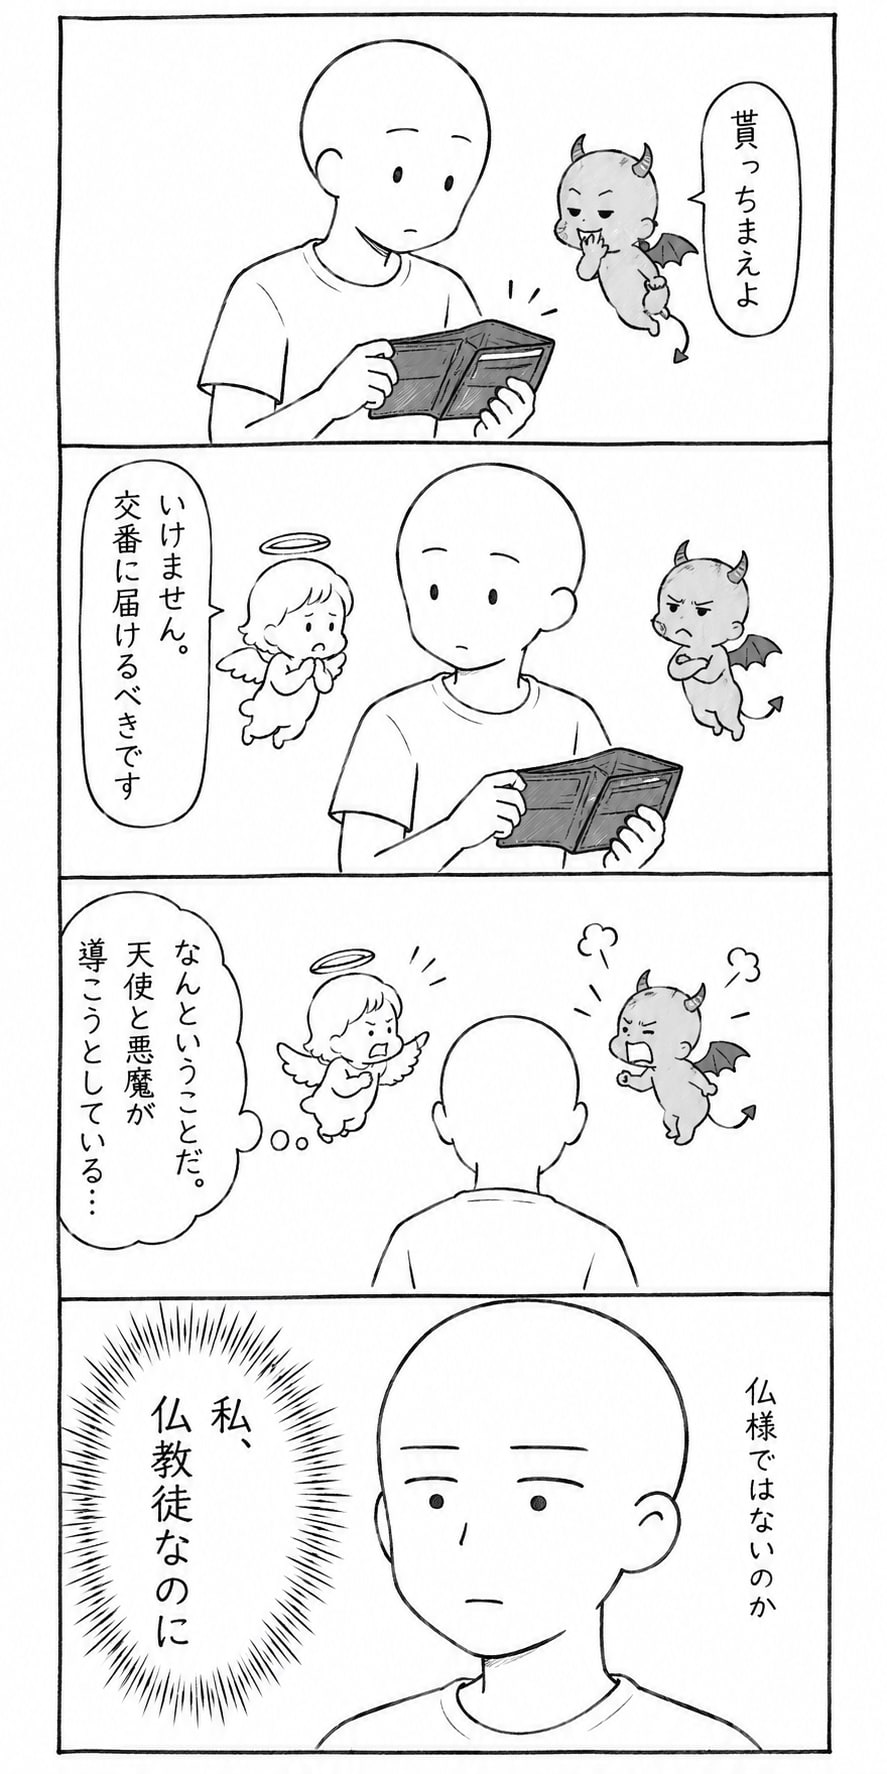 貰っちまえよ
いけません。
交番に届けるべきです
なんということだ。
天使と悪魔が
導こうとしている…
仏様ではないのか
私、
仏教徒なのに